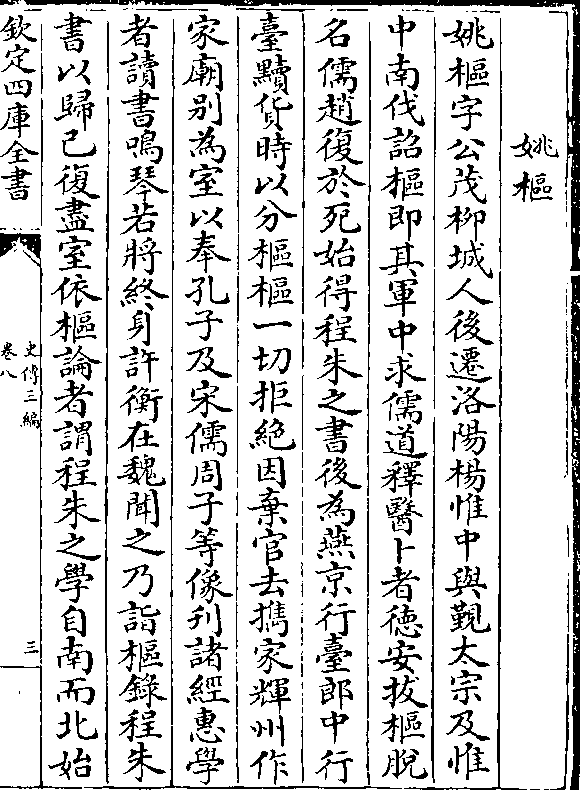 姚樞
姚樞字公茂柳城人後遷洛陽楊惟中與覲太宗及惟
中南伐詔樞即其軍中求儒道釋醫卜者徳安拔樞脫
名儒趙復於死始得程朱之書後為燕京行臺郎中行
臺黷貨時以分樞樞一切拒絶因棄官去携家輝州作
家廟别為室以奉孔子及宋儒周子等像刋諸經惠學
者讀書鳴琴若將終身許衡在魏聞之乃詣樞錄程朱
書以歸已復盡室依樞論者謂程朱之學自南而北始
欽定四庫全書
史傳三編
卷八
三